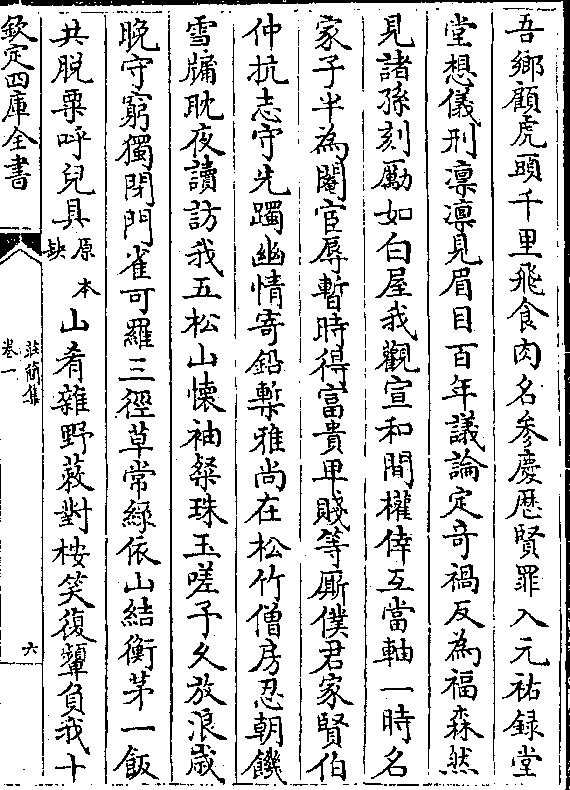 吾鄉顧虎頭千里飛食肉名參慶歴賢罪入元祐録堂
堂想儀刑凛凛見眉目百年議論定奇禍反為福森然
見諸孫刻勵如白屋我觀宣和間權倖互當軸一時名
家子半為閹宦辱暫時得富貴卑賤等厮僕君家賢伯
仲抗志守先躅幽情寄鉛槧雅尚在松竹僧房忍朝饑
雪牖耽夜讀訪我五松山懷袖粲珠玉嗟予久放浪歳
晚守窮獨閉門雀可羅三徑草常緑依山結衡茅一飯
共脱粟呼兒具原本缺山肴雜野蔌對桉笑復顰負我十
欽定四庫全書
莊簡集
卷一
六